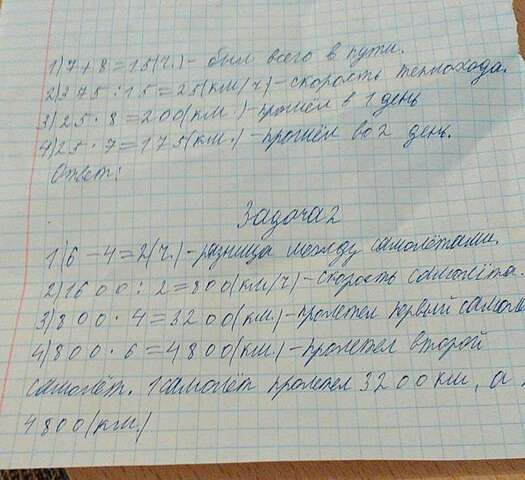 1) 7 + 8 = 15 (ч.) - был всего в пути.
2) 375 : 15 = 25 (км/ч) - скорость теплохода.
3) 25 · 8 = 200 (км.) - прошёл в 1 день
4) 25 · 7 = 175 (км.) - прошёл во 2 день.
Ответ:
Задача 2
1) 6 - 4 = 2 (ч.) - разница между самолётами.
2) 1600 : 2 = 800 (км/ч) - скорость самолёта.
3) 800 · 4 = 3200 (км.) - пролетел первый самолё
4) 800 · 6 = 4800 (км.) - пролетел второй
самолёт. 1 самолёт пролетел 3200 км, а
4800 (км)